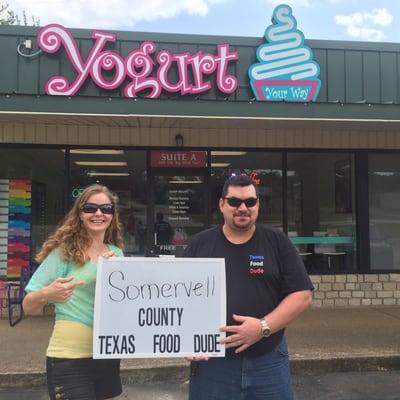 Yogurt
Your Way
SUITE A
FREE
Texas
Food
Dude
Somervell
COUNTY
TEXAS FOOD DUDE